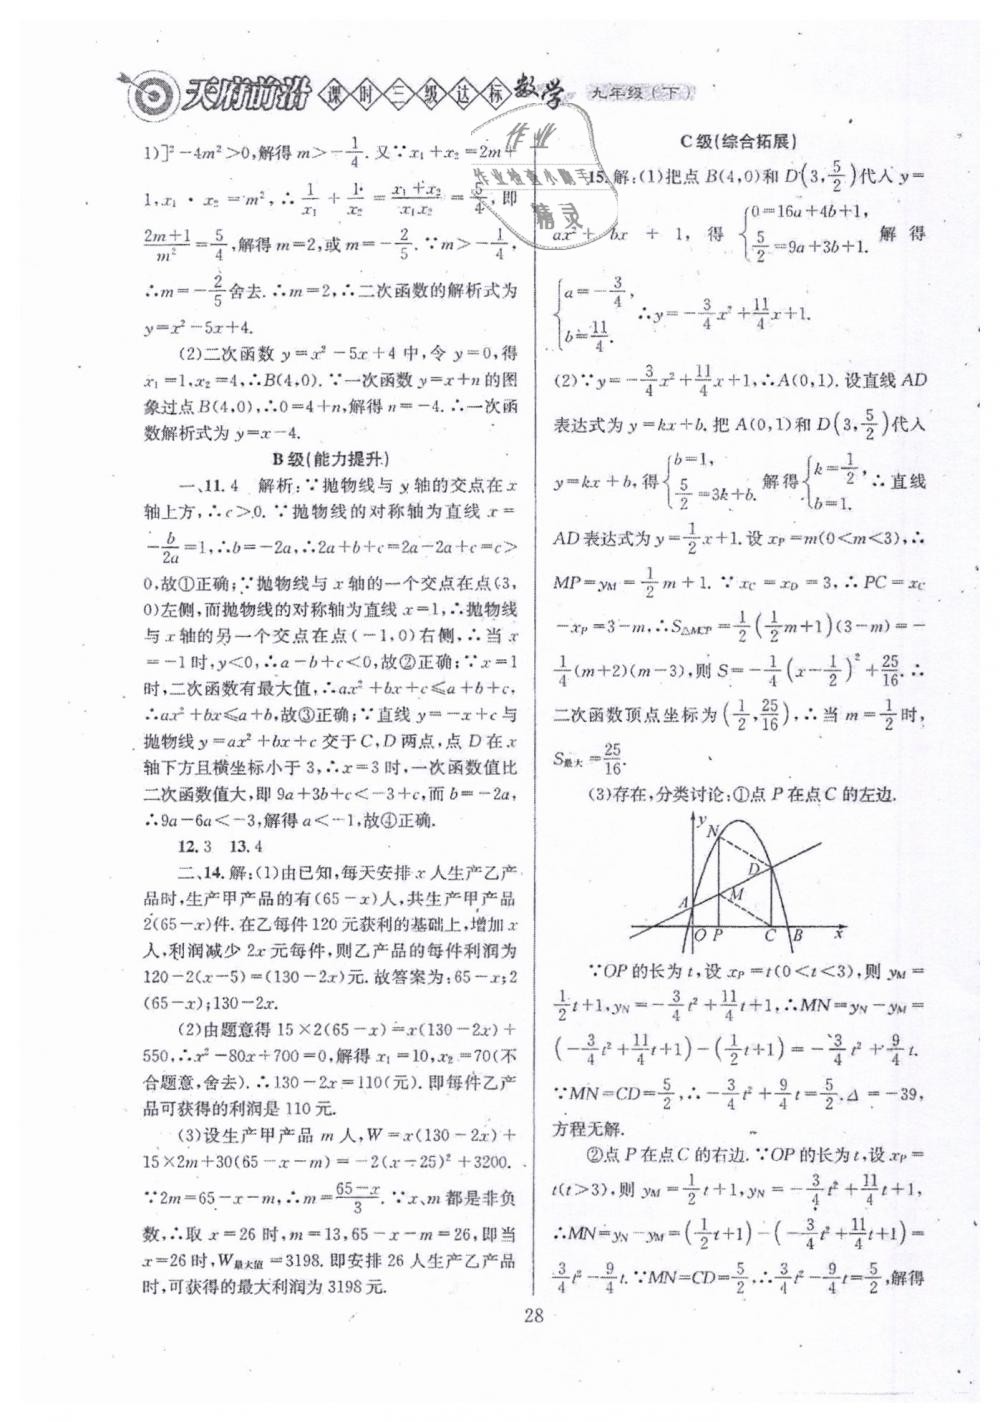 天府前沿 课时三级达标 数学 九年级(下)
1)]²-4m²>0,解得 m>-1/4. 又∵x₁+x₂=2m+
1,x₁·x₂=m²,∴1/x₁+1/x₂=(x₁+x₂)/(x₁x₂)=5/4,即
(2m+1)/m²=5/4,解得 m=2,或 m=-2/5.∵m>-1/4,
∴m=-2/5舍去.∴m=2,∴二次函数的解析式为
y=x²-5x+4.
(2)二次函数 y=x²-5x+4 中,令 y=0,得
x₁=1,x₂=4,∴B(4,0).∵一次函数 y=x+n 的图
象过点 B(4,0),∴0=4+n,解得 n=-4.∴一次函
数解析式为 y=x-4.
B 级(能力提升)
一、11.4 解析:∵抛物线与 y 轴的交点在 x
轴上方,∴c>0.∵抛物线的对称轴为直线 x=
-b/2a=1,∴b=-2a,∴2a+b+c=2a-2a+c=c>
0,故①正确;∵抛物线与 x 轴的一个交点在点(3,
0)左侧,而抛物线的对称轴为直线 x=1,∴抛物线
与 x 轴的另一个交点在点(-1,0)右侧,∴当 x
=-1时,y<0,∴a-b+c<0,故②正确;∵x=1
时,二次函数有最大值,∴ax²+bx+c≤a+b+c,
∴ax²+bx≤a+b,故③正确;∵直线 y=-x+c 与
抛物线 y=ax²+bx+c 交于 C,D 两点,点 D 在 x
轴下方且横坐标小于 3,∴x=3 时,一次函数值比
二次函数值大,即 9a+3b+c<-3+c,而 b=-2a,
∴9a-6a<-3,解得 a<-1,故④正确.
12.3 13.4
二、14.解:(1)由已知,每天安排 x 人生产乙产
品时,生产甲产品的有(65-x)人,共生产甲产品
2(65-x)件.在乙每件 120 元获利的基础上,增加 x
人,利润减少 2x 元每件,则乙产品的每件利润为
120-2(x-5)=(130-2x)元.故答案为:65-x;2
(65-x);130-2x.
(2)由题意得 15×2(65-x)=x(130-2x)+
550,∴x²-80x+700=0,解得 x₁=10,x₂=70(不
合题意,舍去).∴130-2x=110(元).即每件乙产
品可获得的利润是 110 元.
(3)设生产甲产品 m 人,W=x(130-2x)+
15×2m+30(65-x-m)=-2(x-25)²+3200.
∵2m=65-x-m,∴m=(65-x)/3.∵x、m 都是非负
数,∴取 x=26 时,m=13,65-x-m=26,即当
x=26 时,W最大值=3198.即安排 26 人生产乙产品
时,可获得的最大利润为 3198 元.
C 级(综合拓展)
15.解:(1)把点 B(4,0)和 D(3,5/2)代入 y=
ax²+bx+1,得{0=16a+4b+1, 5/2=9a+3b+1. 解得
{a=-3/4, b=11/4. ∴y=-3/4x²+11/4x+1.
(2)∵y=-3/4x²+11/4x+1,∴A(0,1).设直线 AD
表达式为 y=kx+b.把 A(0,1)和 D(3,5/2)代入
y=kx+b,得{b=1, 5/2=3k+b. 解得{k=1/2, b=1. ∴直线
AD 表达式为 y=1/2x+1.设 xP=m(0<m<3),∴
MP=yM=1/2m+1.∵xC=xD=3,∴PC=xC
-xP=3-m,∴S△MCP=1/2(1/2m+1)(3-m)=-
1/4(m+2)(m-3),则 S=-1/4(x-1/2)²+25/16.∴
二次函数顶点坐标为(1/2,25/16),∴当 m=1/2时,
S最大=25/16.
(3)存在,分类讨论:①点 P 在点 C 的左边.
y N D M A O P C B x
∵OP 的长为 t,设 xP=t(0<t<3),则 yM=
1/2t+1,yN=-3/4t²+11/4t+1,∴MN=yN-yM=
(-3/4t²+11/4t+1)-(1/2t+1)=-3/4t²+9/4t.
∵MN=CD=5/2,∴-3/4t²+9/4t=5/2.Δ=-39,
方程无解.
②点 P 在点 C 的右边.∵OP 的长为 t,设 xP=
t(t>3),则 yM=1/2t+1,yN=-3/4t²+11/4t+1,
∴MN=yN-yM=(1/2t+1)-(-3/4t²+11/4t+1)=
3/4t²-9/4t.∵MN=CD=5/2,∴3/4t²-9/4t=5/2,解得
28
作业
作业检查小助手
精灵